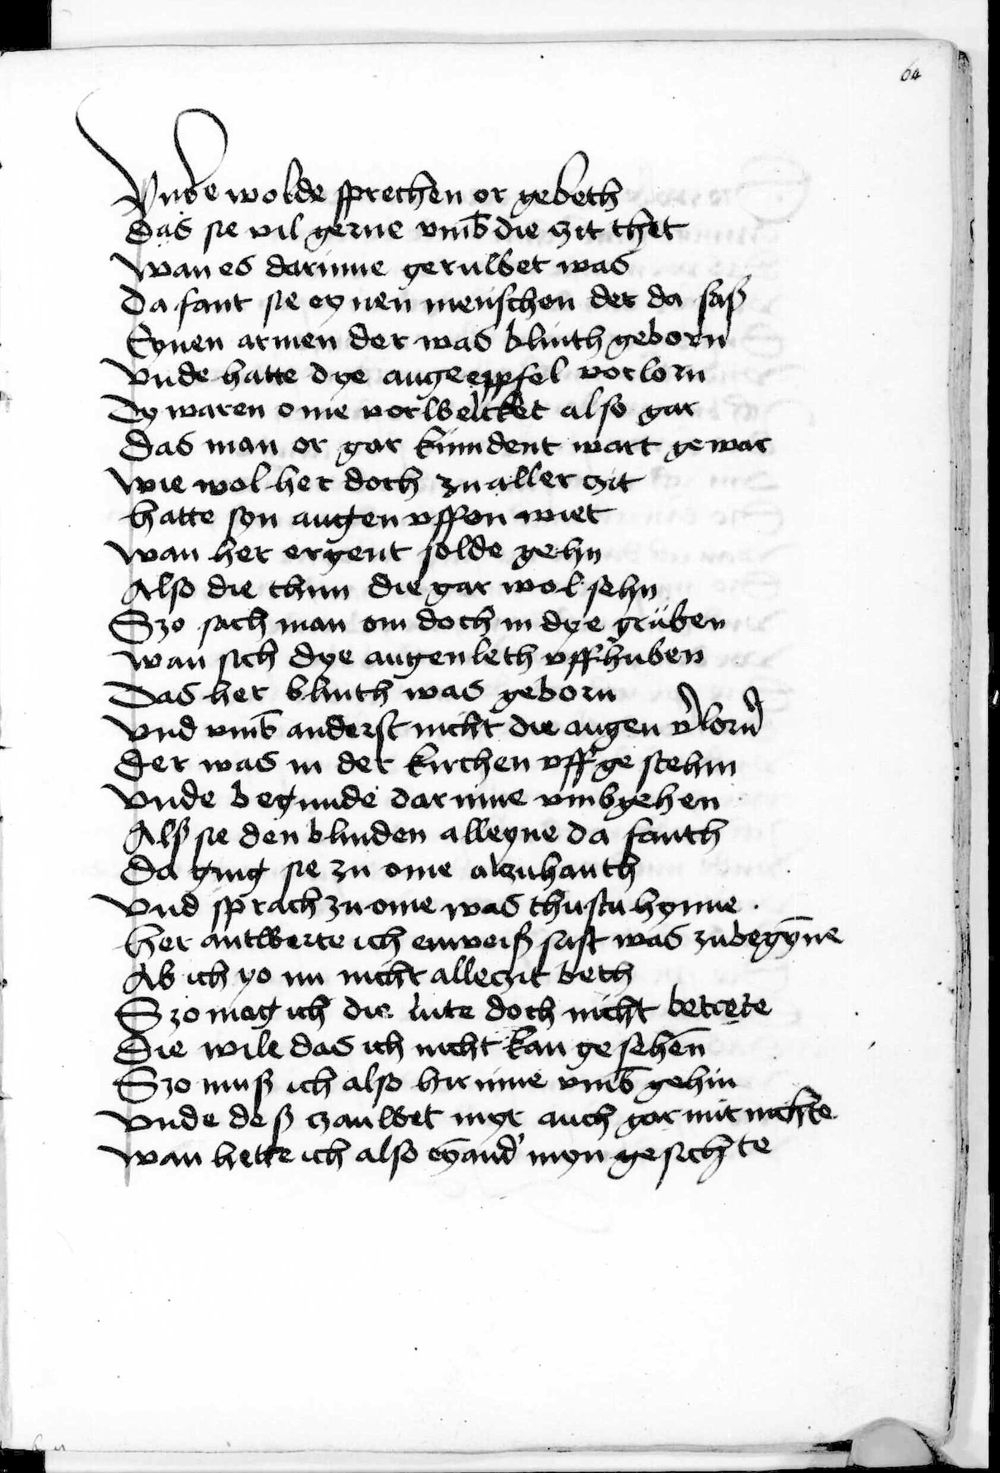 64
Vnde wolde sprechen or gebeth
Das sie vil gerne vmb die zit thet
Wan es darinne geruwet was
Da fant sie eynen menschen der da saß
Eynen armen der was blinth geborn
Vnde hatte dye augeeppfel vorlorn
Dy waren ome vorwelcket also gar
Das man or gar kunident wart gewar
Wie wol her doch zu aller czit
hatte syn augen vffen wiet
Wan her ergent solde gehn
Also die thun die gar wol sehn
Szo sach man om doch in dye gruben
Wan sich dye augenleth vffhuben
Das her blinth was geborn
Vnd vmb anderst nicht die augen v'lorn
Der was in der kirchen vff gestehin
Vnde begunde darinne vmbgehen
Alß sie den blinden alleyne da fanth
Da ging sie zu ome alzuhanth
Vnd sprach zu ome was thustu hynne
her antwerte ich enweiß fast was zubegȳne
Ab ich yo nu nicht alleczit beth
Szo mag ich die lute doch nicht betrete
Die wile das ich nicht kan gesehen
Szo muß ich also hir inne vmb gehin
Vnde deß czauwet myr auch gar mit nichte
Wan hette ich also eȳ and' myn gesichte